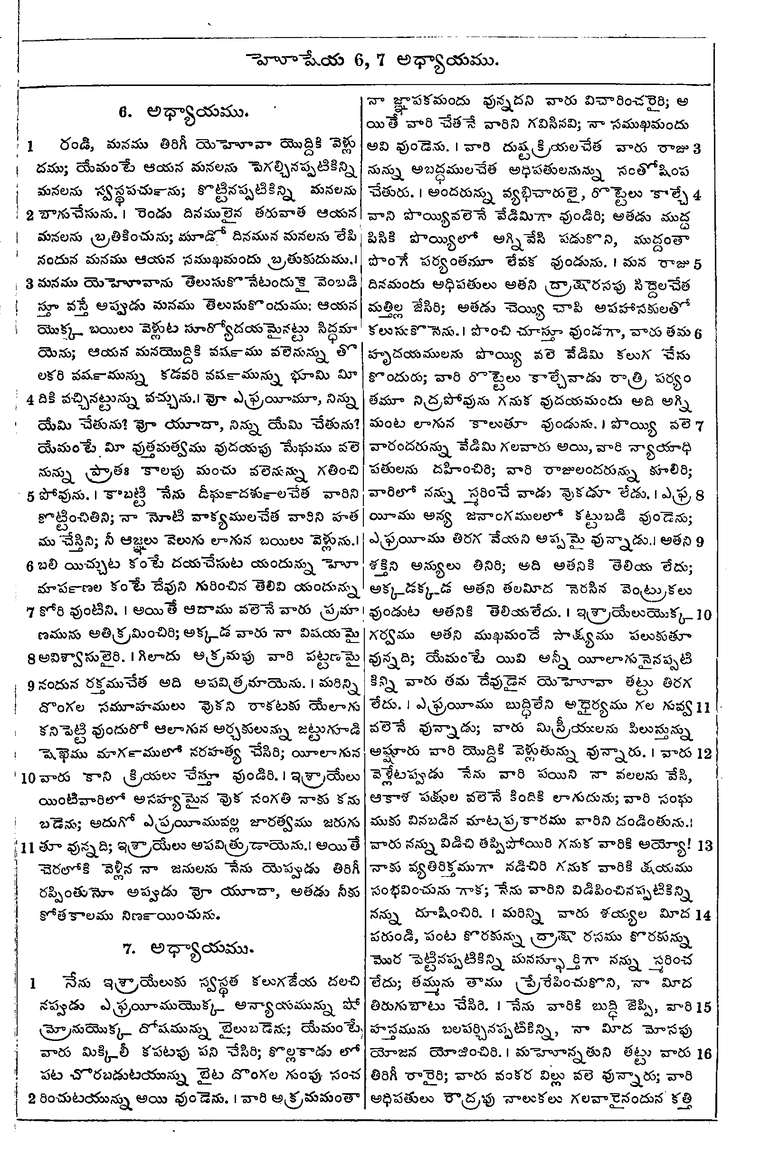 హెూషేయ 6, 7 అధ్యాయము.
6. అధ్యాయము.
1 రండి, మనము తిరిగీ యెహెూవా యొద్దికి వెళ్లు
దము; యేమంటే ఆయన మనలను పెగల్చినప్పటికిన్ని
మనలను స్వస్థపచుఁను; కొట్టినప్పటికిన్ని మనలను
2 బాగుచేసును. । రెండు దినములైన తరువాత ఆయన
మనలను బ్రతికించును; మూడో దినమున మనలను లేపి
నందున మనము ఆయన సముఖమందు బ్రతుకుదుము.।
3 మనము యెహెూవాను తెలుసుకొనేటందుకై వెంబడి
స్తూ వస్తే అప్పుడు మనము తెలుసుకొందుము; ఆయన
యొక్క బయిలు వెళ్లుట సూర్యోదయమైనట్టు సిద్ధమా
యెను; ఆయన మనయొద్దికి వషఁము వలెనున్ను తొ
లకరి వషఁమున్ను కడవరి వషఁమున్ను భూమి మీ
4 దికి వచ్చినట్టున్ను వచ్చును.। వో ఎఫ్రయీమూ, నిన్ను
యేమి చేతును? వో యూదా, నిన్ను యేమి చేతును?
యేమంటే మీ వుత్తమత్వము వుదయపు మేఘము వలె
నున్ను ప్రాతః కాలపు మంచు వలెనున్ను గతించి
5 పోవును. । కాబట్టి నేను దీఘఁదశుఁలచేత వారిని
కొట్టించితిని; నా నోటి వాక్యములచేత వారిని హత
ము చేస్తిని; నీ ఆజ్ఞలు వెలుగు లాగున బయలు వెళ్లును.।
6 బలి యిచ్చుట కంటే దయచేసుట యందున్ను హెూ
మాపఁణల కంటే దేవుని గురించిన తెలివి యందున్ను
7 కోరి వుంటిని. । అయితే ఆదాము వలెనే వారు ప్రమా
ణమును అతిక్రమించిరి; అక్కడ వారు నా విషయమై
8 అవిశ్వాసులైరి. । గిలాదు అక్రమపు వారి పట్టణమై
9 నందున రక్తముచేత అది అపవిత్రమాయెను. । మరిన్ని
దొంగల సమూహములు వుకని రాకటకు యేలాగు
కనిపెట్టి వుందురో ఆలాగున అర్చకులున్ను జట్టుగూడి
షెఖెము మాగఁములో నరహత్య చేసిరి; యీలాగున
10 వారు కాని క్రియలు చేస్తూ వుండిరి. । ఇశ్రాయేలు
యింటివారిలో అసహ్యమైన వుక సంగతి నాకు కను
బడెను; అదుగో ఎఫ్రయీమువల్ల జారత్వము జరుగు
11 తూ వున్నది; ఇశ్రాయేలు అపవిత్రుడాయెను.। అయితే
చెరలోకి వెళ్లిన నా జనులను నేను యెప్పుడు తిరిగీ
రప్పింతునో అప్పుడు వో యూదా, అతడు నీకు
కోతకాలము నిణఁయించును.
7. అధ్యాయము.
1 నేను ఇశ్రాయేలుకు స్వస్థత కలుగజేయ దలచి
నప్పుడు ఎఫ్రయీముయొక్క అన్యాయమున్ను షో
మ్రోనుయొక్క దోషమున్ను బైలుబడెను; యేమంటే,
వారు మిక్కిలీ కపటపు పని చేసిరి; కొల్లకాడు లో
పట చొరబడుటయున్ను బైట దొంగల గుంపు సంచ
2 రించుటయున్ను అయి వుండెను. । వారి అక్రమమంతా
నా జ్ఞాపకమందు వున్నదని వారు విచారించరైరి; అ
యితే వారి చేతనే వారిని గవిసినవి; నా సముఖమందు
అవి వుండెను. । వారి దుష్టక్రియలచేత వారు రాజు 3
నున్ను అబద్ధములచేత అధిపతులనున్ను సంతోషింప
చేతురు. । అందరున్ను వ్యభిచారులై, రొట్టెలు కాల్చే 4
వాని పొయ్యివలెనే వేడిమిగా వుండిరి; అతడు ముద్ద
పిసికి పొయ్యిలో అగ్నివేసి పడుకొని, ముద్దంతా
పొంగే పర్యంతమూ లేవక వుండును. । మన రాజు 5
దినమందు అధిపతులు అతని ద్రాక్షారసపు సిద్దెలచేత
మత్తిల్ల జేసిరి; అతడు చెయ్యి చాపి అపహాసకులతో
కలుసుకొనెను.। పొంచి చూస్తూ వుండగా, వారు తమ 6
హృదయములను పొయ్యి వలె వేడిమి కలుగ చేసు
కొందురు; వారి రొట్టెలు కాల్చేవాడు రాత్రి పర్యం
తమూ నిద్రపోవును గనుక వుదయమందు అది అగ్ని
మంట లాగున కాలుతూ వుండును. । పొయ్యి వలె 7
వారందరున్ను వేడిమి గలవారు అయి, వారి న్యాయాధి
పతులను దహించిరి; వారి రాజులందరున్ను కూలిరి;
వారిలో నన్ను స్మరించే వాడు వుకడూ లేడు. । ఎఫ్ర 8
యీము అన్య జనాంగములలో కట్టుబడి వుండెను;
ఎఫ్రయీము తిరగ వేయని అప్పమై వున్నాడు.। అతని 9
శక్తిని అన్యులు తినిరి; అది అతనికి తెలియ లేదు;
అక్కడక్కడ అతని తలమీద నెరసిన వెంట్రుకలు
వుండుట అతనికి తెలియలేదు. । ఇశ్రాయేలుయొక్క 10
గర్వము అతని ముఖమందే సాక్ష్యము పలుకుతూ
వున్నది; యేమంటే యివి అన్నీ యీలాగునైనప్పటి
కిన్ని వారు తమ దేవుడైన యెహెూవా తట్టు తిరగ
లేదు. । ఎఫ్రయీము బుద్ధిలేని అధైర్యము గల గువ్వ 11
వలెనే వున్నాడు; వారు మిస్రీయులను పిలుస్తున్ను
అష్షూరు వారి యొద్దికి వెళ్లుతున్ను వున్నారు. । వారు 12
వెళ్లేటప్పుడు నేను వారి పయిని నా వలలను వేసి,
ఆకాశ పక్షుల వలెనే కిందికి లాగుదును; వారి సంఘ
ముకు వినబడిన మాటప్రకారము వారిని దండింతును.।
వారు నన్ను విడిచి తప్పిపోయిరి గనుక వారికి అయ్యో! 13
నాకు వ్యతిరిక్తముగా నడిచిరి గనుక వారికి క్షయము
సంభవించును గాక; నేను వారిని విడిపించినప్పటికిన్ని
నన్ను దూషించిరి. । మరిన్ని వారు శయ్యల మీద 14
పరుండి, పంట కొరకున్ను ద్రాక్షా రసము కొరకున్ను
మొర పెట్టినప్పటికిన్ని మనస్ఫూర్తిగా నన్ను స్మరించ
లేదు; తమ్మును తాము ప్రేరేపించుకొని, నా మీద
తిరుగుబాటు చేసిరి. । నేను వారికి బుద్ధి జెప్పి, వారి 15
హస్తమును బలపర్చినప్పటికిన్ని, నా మీద మోసపు
యోజన యోజించిరి. । మహెూన్నతుని తట్టు వారు 16
తిరిగీ రారైరి; వారు వంకర విల్లు వలె వున్నారు; వారి
అధిపతులు రౌద్రపు నాలుకలు గలవారైనందున కత్తి